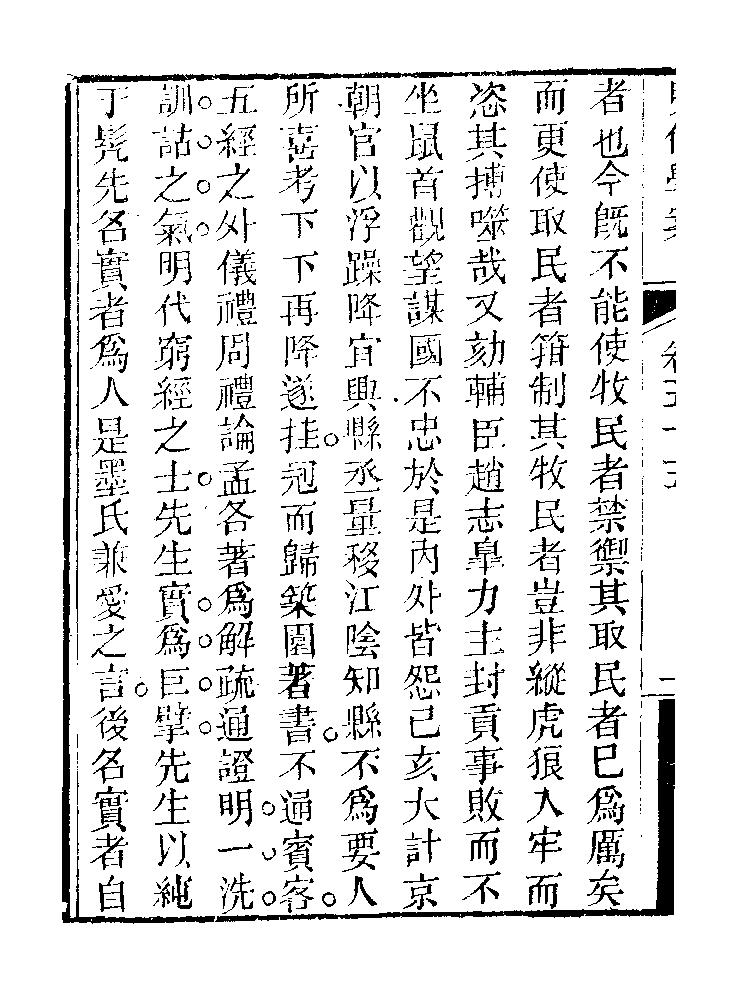 明儒學案 卷五十五 二
者也今旣不能使牧民者禁禦其取民者已爲厲矣
而更使取民者箝制其牧民者豈非縱虎狼入牢而
恣其搏噬哉又劾輔臣趙志臯力主封貢事敗而不
坐鼠首觀望謀國不忠於是內外皆怨己亥大計京
朝官以浮躁降宜興縣丞量移江陰知縣不爲要人
所喜考下下再降遂挂冠而歸築園著書不通賓客
五經之外儀禮周禮論孟各著爲解疏通證明一洗
訓詁之氣明代窮經之士先生實爲巨擘先生以純
于髠先名實者爲人是墨氏兼愛之言後名實者自